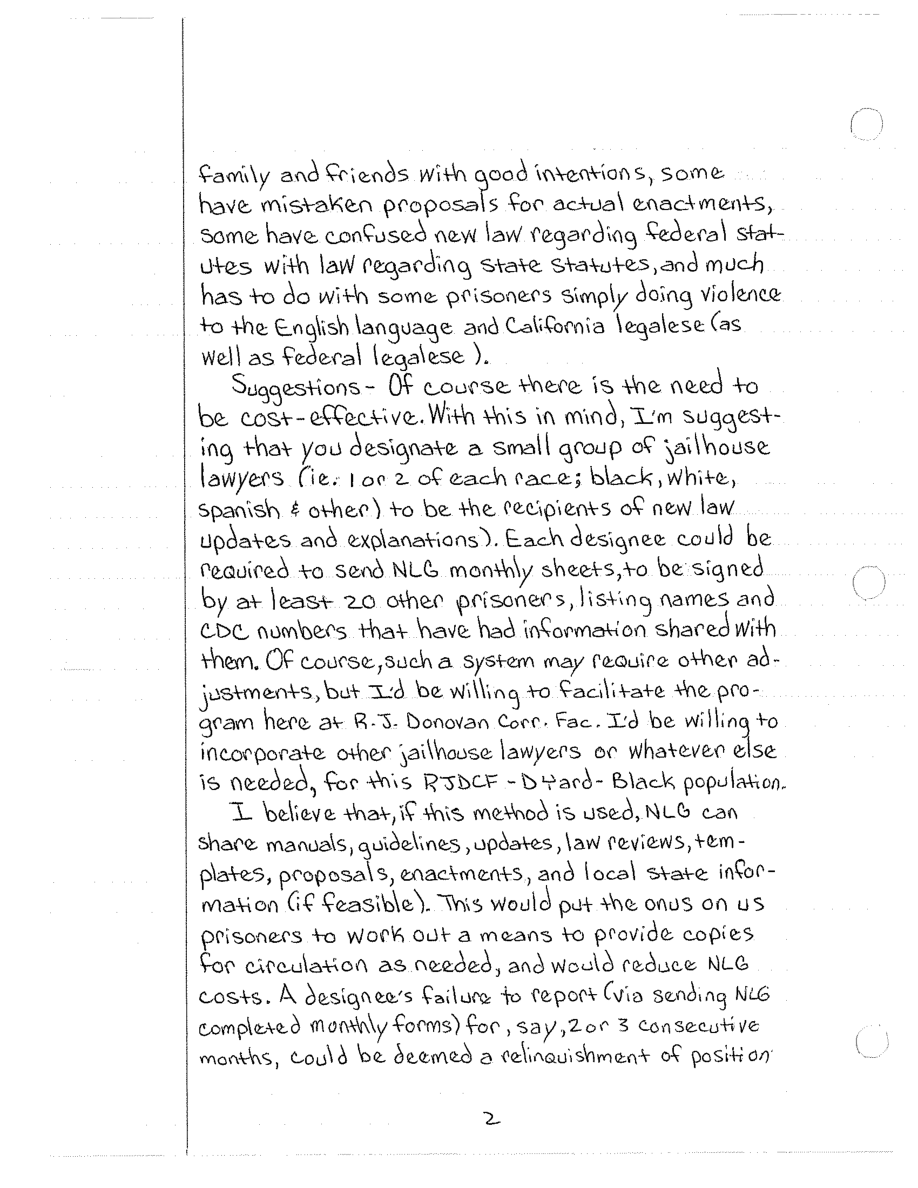 family and friends with good intentions, some
have mistaken proposals for actual enactments,
some have confused new law regarding federal stat-
utes with law regarding state statutes, and much
has to do with some prisoners simply doing violence
to the English language and California legalese (as
well as federal legalese).
Suggestions - Of course there is the need to
be cost-effective. With this in mind, I'm suggest-
ing that you designate a small group of jailhouse
lawyers (ie. 1 or 2 of each race; black, white,
spanish & other) to be the recipients of new law
updates and explanations). Each designee could be
required to send NLG monthly sheets, to be signed
by at least 20 other prisoners, listing names and
CDC numbers that have had information shared with
them. Of course, such a system may require other ad-
justments, but I'd be willing to facilitate the pro-
gram here at R.J. Donovan Corr. Fac. I'd be willing to
incorporate other jailhouse lawyers or whatever else
is needed, for this RJDCF - D Yard - Black population.
I believe that, if this method is used, NLG can
share manuals, guidelines, updates, law reviews, tem-
plates, proposals, enactments, and local state infor-
mation (if feasible). This would put the onus on us
prisoners to work out a means to provide copies
for circulation as needed, and would reduce NLG
costs. A designee's failure to report (via sending NLG
completed monthly forms) for, say, 2 or 3 consecutive
months, could be deemed a relinquishment of position
2